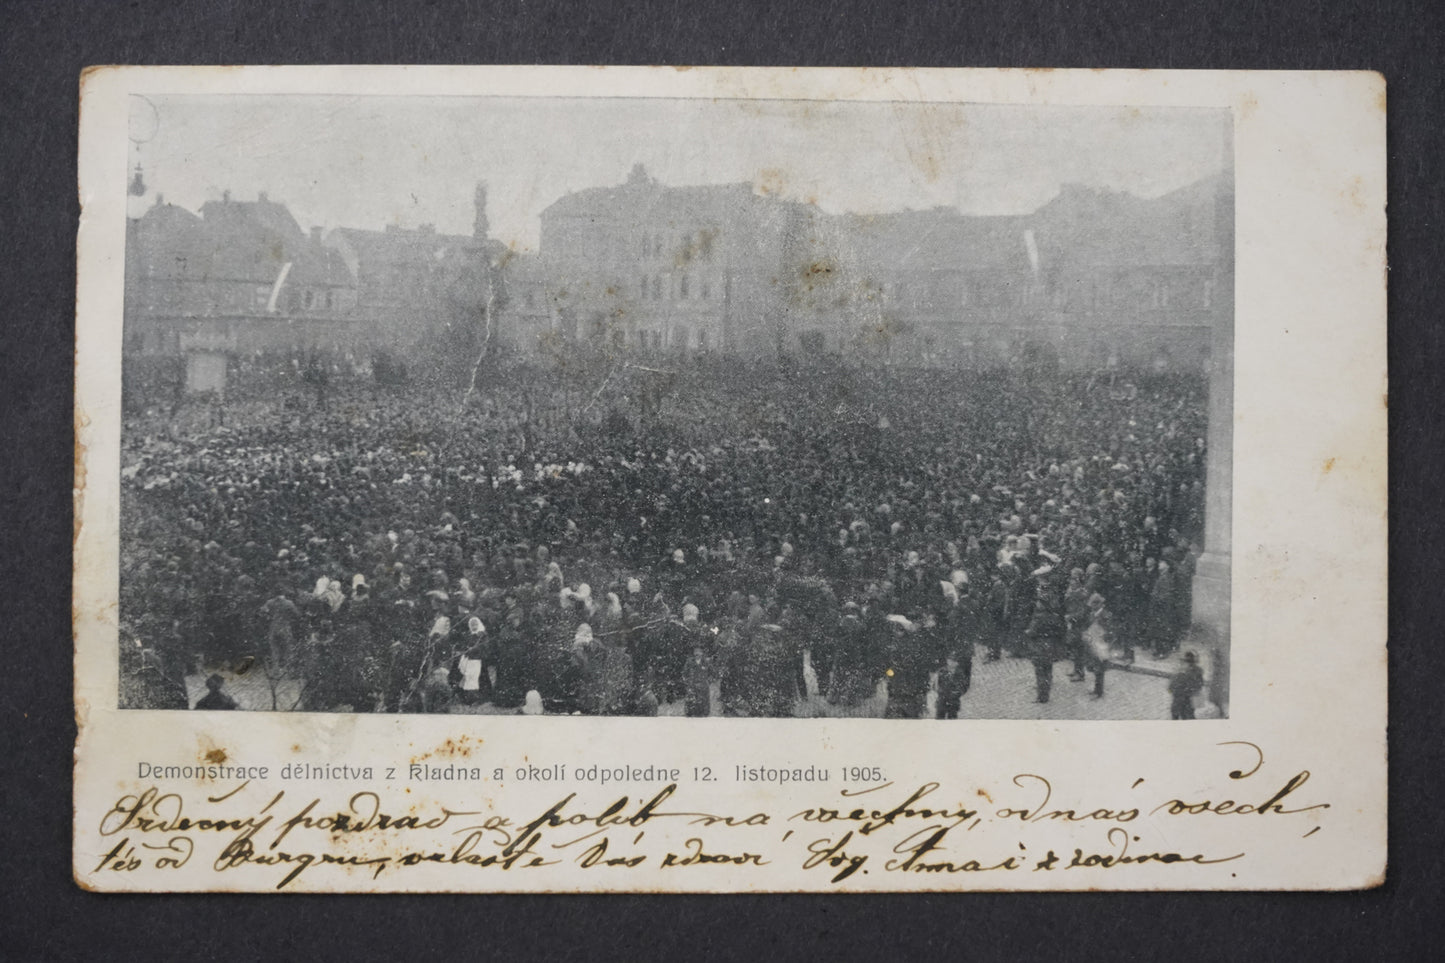 Demonstrace dělnictva z Kladna a okolí odpoledne 12. listopadu 1905.
Srdečný pozdrav a polib na všechny, od nás všech,
též od zvláště Vás zdraví Anna i z rodinou.